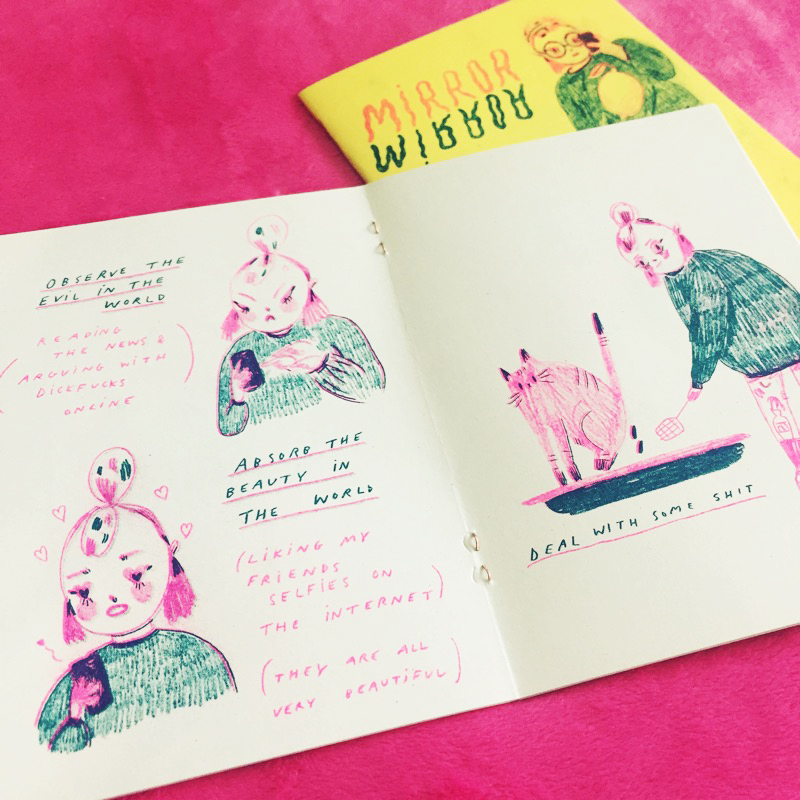 MIRROR
MIRROR
OBSERVE THE
EVIL IN THE
WORLD
(READING
THE NEWS &
ARGUING WITH
DICKFUCKS
ONLINE)
ABSORB THE
BEAUTY IN
THE WORLD
(LIKING MY
FRIENDS
SELFIES ON
THE INTERNET)
(THEY ARE ALL
VERY BEAUTIFUL)
DEAL WITH SOME SHIT